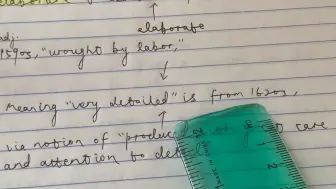 elaborate
adj.
1590s, "wrought by labor,"
meaning "very detailed" is from 1620s,
via notion of "produced care
and attention to